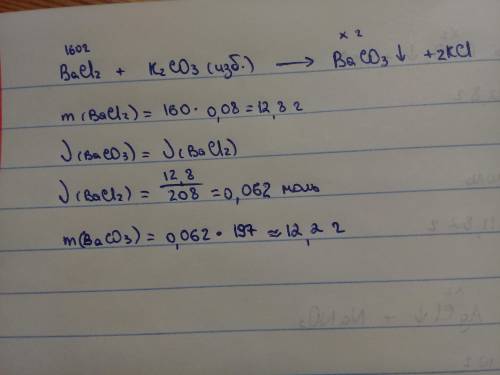 160г x г
BaCl₂ + K₂CO₃ (изб.) ⟶ BaCO₃↓ + 2KCl
m (BaCl₂) = 160 · 0,08 = 12,8 г
ν(BaCO₃) = ν(BaCl₂)
ν(BaCl₂) = 12,8/208 = 0,062 моль
m(BaCO₃) = 0,062 · 197 ≈ 12,2 г
AgCl↓ + NaNO₃